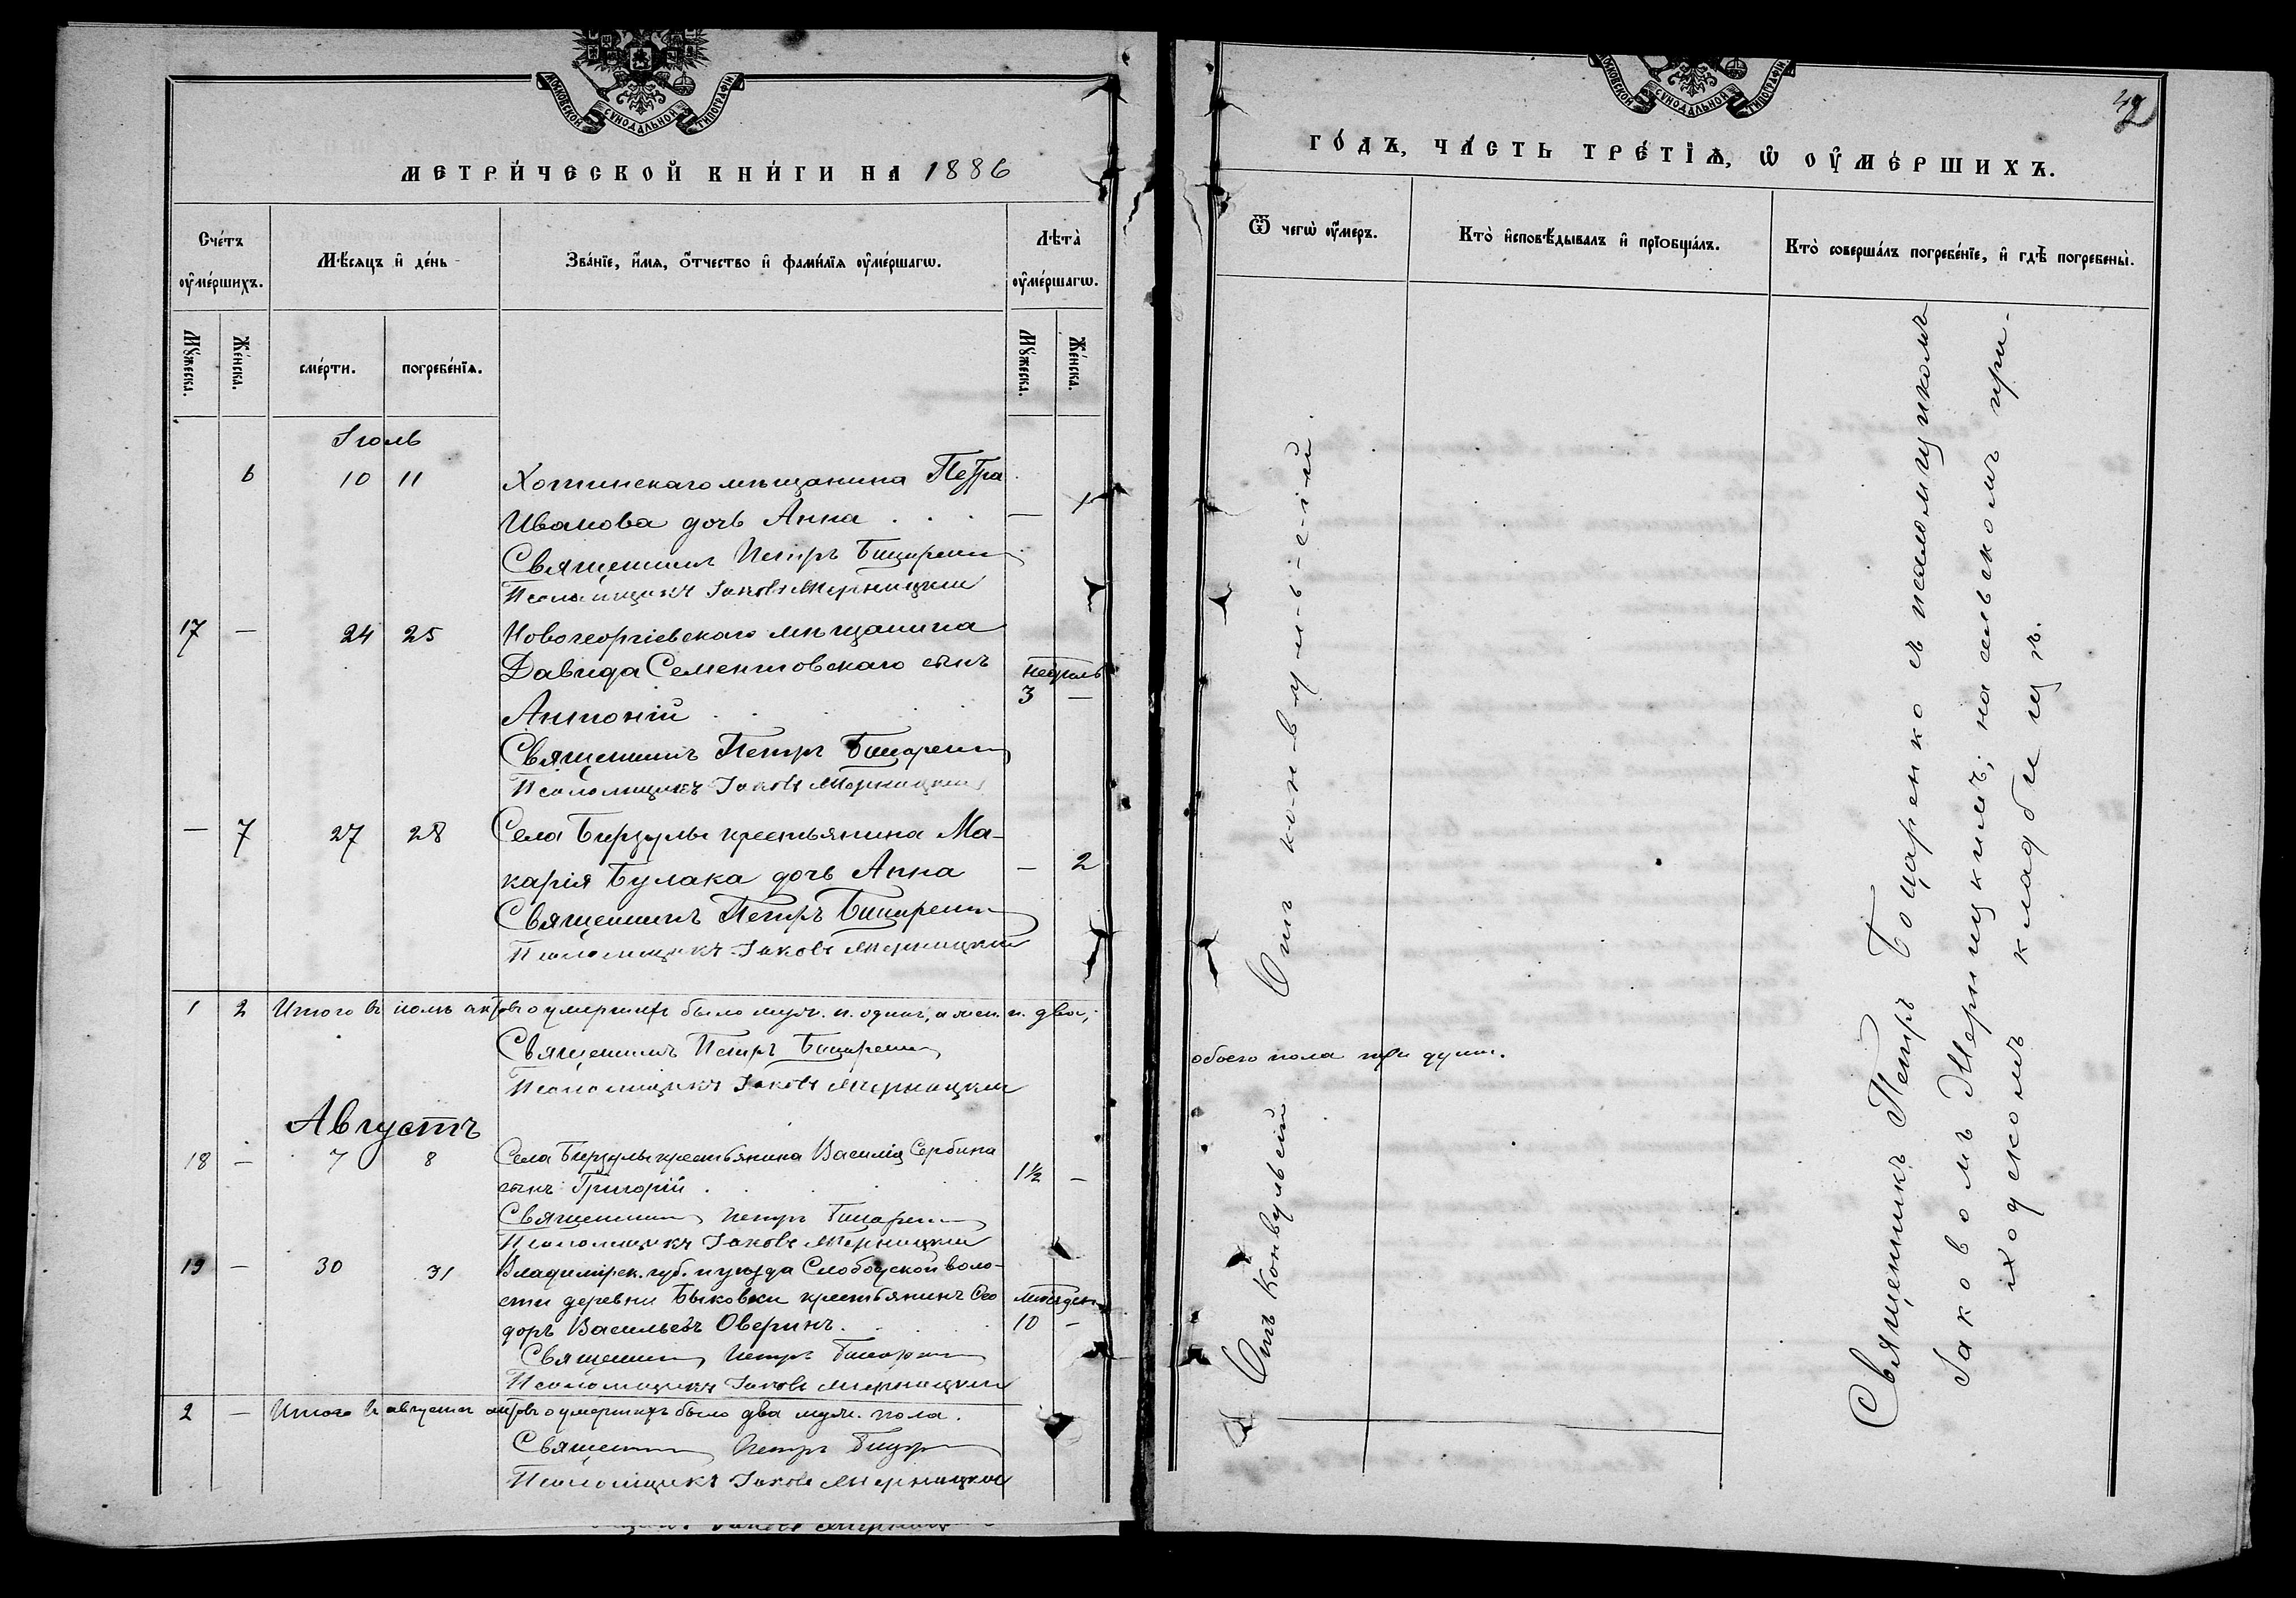 МОСКОВСКОЙ СѴНОДАЛЬНОЙ ТИПОГРАФІИ
МЕТРИ́ЧЕСКОЙ КНИ́ГИ НА 1886
Сче́тъ оу҆ме́ршихъ.
Мѣ́сяцъ и҆ де́нь
Зва́нїе, и҆́мя, ѻ҆́тчество и҆ фами́лїя оу҆ме́ршагѡ.
Лѣта̀ оу҆ме́ршагѡ.
Мꙋ́жеска. Же́нска. сме́рти. погребе́нїя. Мꙋ́жеска. Же́нска.
Іюль
6 10 11 Хотинскаго мѣщанина Петра
Иванова дочь Анна . . . — 1
Священникъ Петръ Боцаренко
Псаломщикъ Іаковъ Мерницкій
17 — 24 25 Новогеоргіевскаго мѣщанина
Давида Сементовскаго сынъ недѣль
Антоній . . . . 3 —
Священникъ Петръ Боцаренко
Псаломщикъ Іаковъ Мерницкій
— 7 27 28 Села Бирзулы крестьянина Ма-
карія Булака дочь Анна — 2
Священникъ Петръ Боцаренко
Псаломщикъ Іаковъ Мерницкій
1 2 Итого въ іюлѣ актовъ о умершихъ было муж. п. одинъ, а жен. п. два,
Священникъ Петръ Боцаренко
Псаломщикъ Іаковъ Мерницкій
Августъ
18 — 7 8 Села Бирзулы крестьянина Василія Сербина
сынъ Григорій . . . . 1½ —
Священникъ Петръ Боцаренко
Псаломщикъ Іаковъ Мерницкій
19 — 30 31 Владимірск. губ. и уѣзда Слободской воло-
сти деревни Быковки крестьянинъ Ѳео
доръ Васильевъ Оверинъ . . . 10 —
Священникъ Петръ Боцаренко
Псаломщикъ Іаковъ Мерницкій
2 — Итого въ августѣ актовъ о умершихъ было два муж. пола.
Священникъ Петръ Боцаренко
Псаломщикъ Іаковъ Мерницкій
МОСКОВСКОЙ СѴНОДАЛЬНОЙ ТИПОГРАФІИ
ГО́ДЪ, ЧА́СТЬ ТРЕ́ТЇѦ, Ѡ҆ ОУ҆МЕ́РШИХЪ.
Ѿ чегѡ̀ оу҆́меръ.
Кто̀ и҆сповѣ́дывалъ и҆ прїобща́лъ.
Кто̀ соверша́лъ погребе́нїе, и҆ гдѣ̀ погребены̀.
Отъ конвульсій.
обоего пола три души.
Отъ конвульсій
Священникъ Петръ Боцаренко съ псаломщикомъ
Іаковомъ Мерницкимъ; на сельскомъ при-
ходскомъ кладбищѣ.